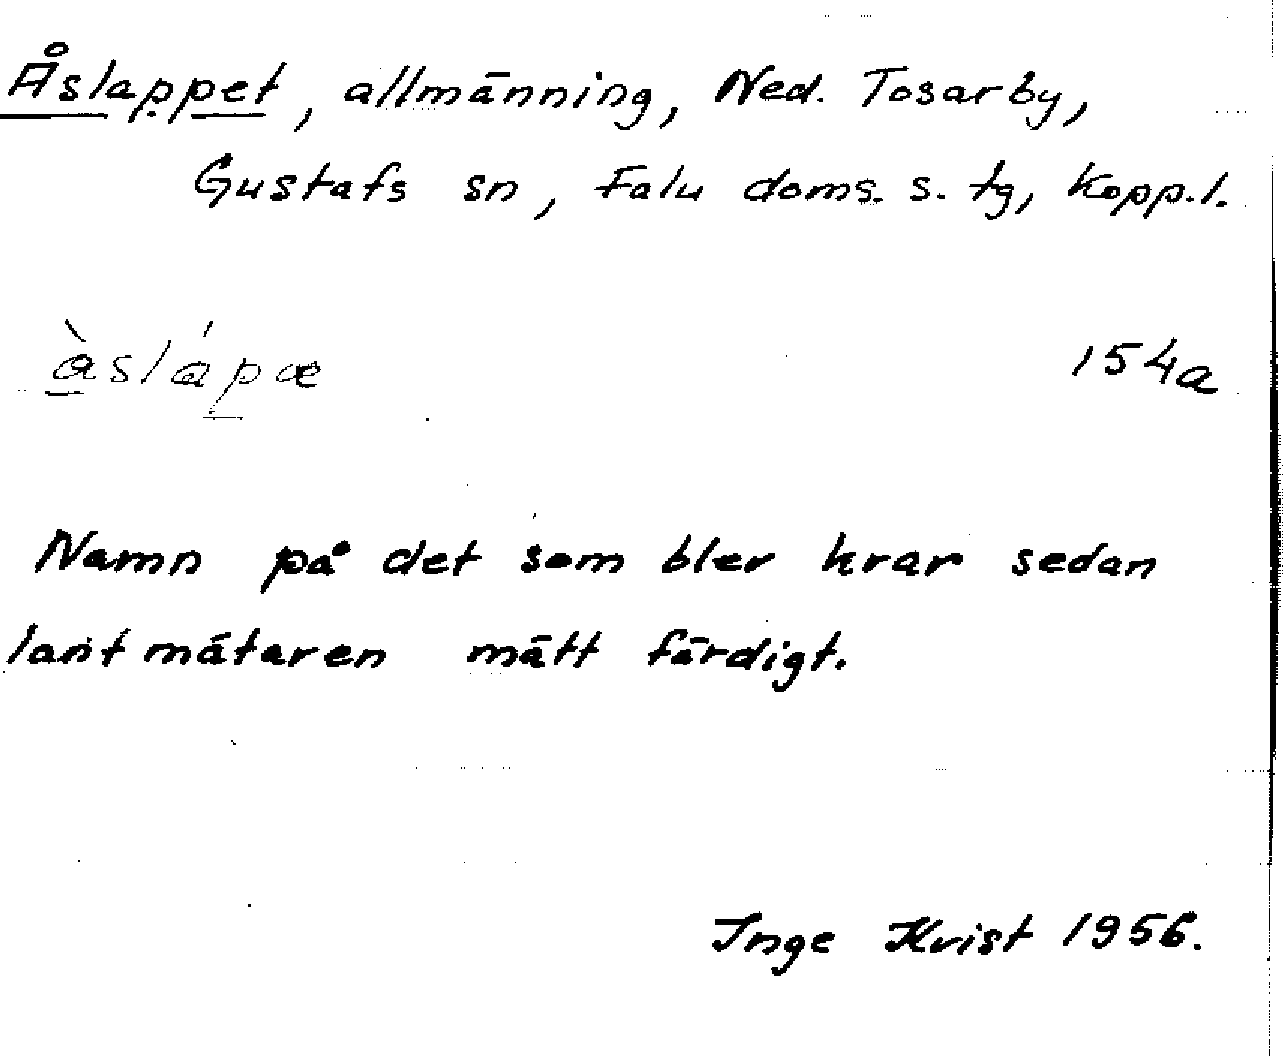 Åslappet, allmänning, Ned. Tosarby,
Gustafs sn, Falu doms. s. tg, Kopp.l.
àslápæ 154a
Namn på det som bler krar sedan
lantmätaren mätt färdigt.
Inge Kvist 1956.